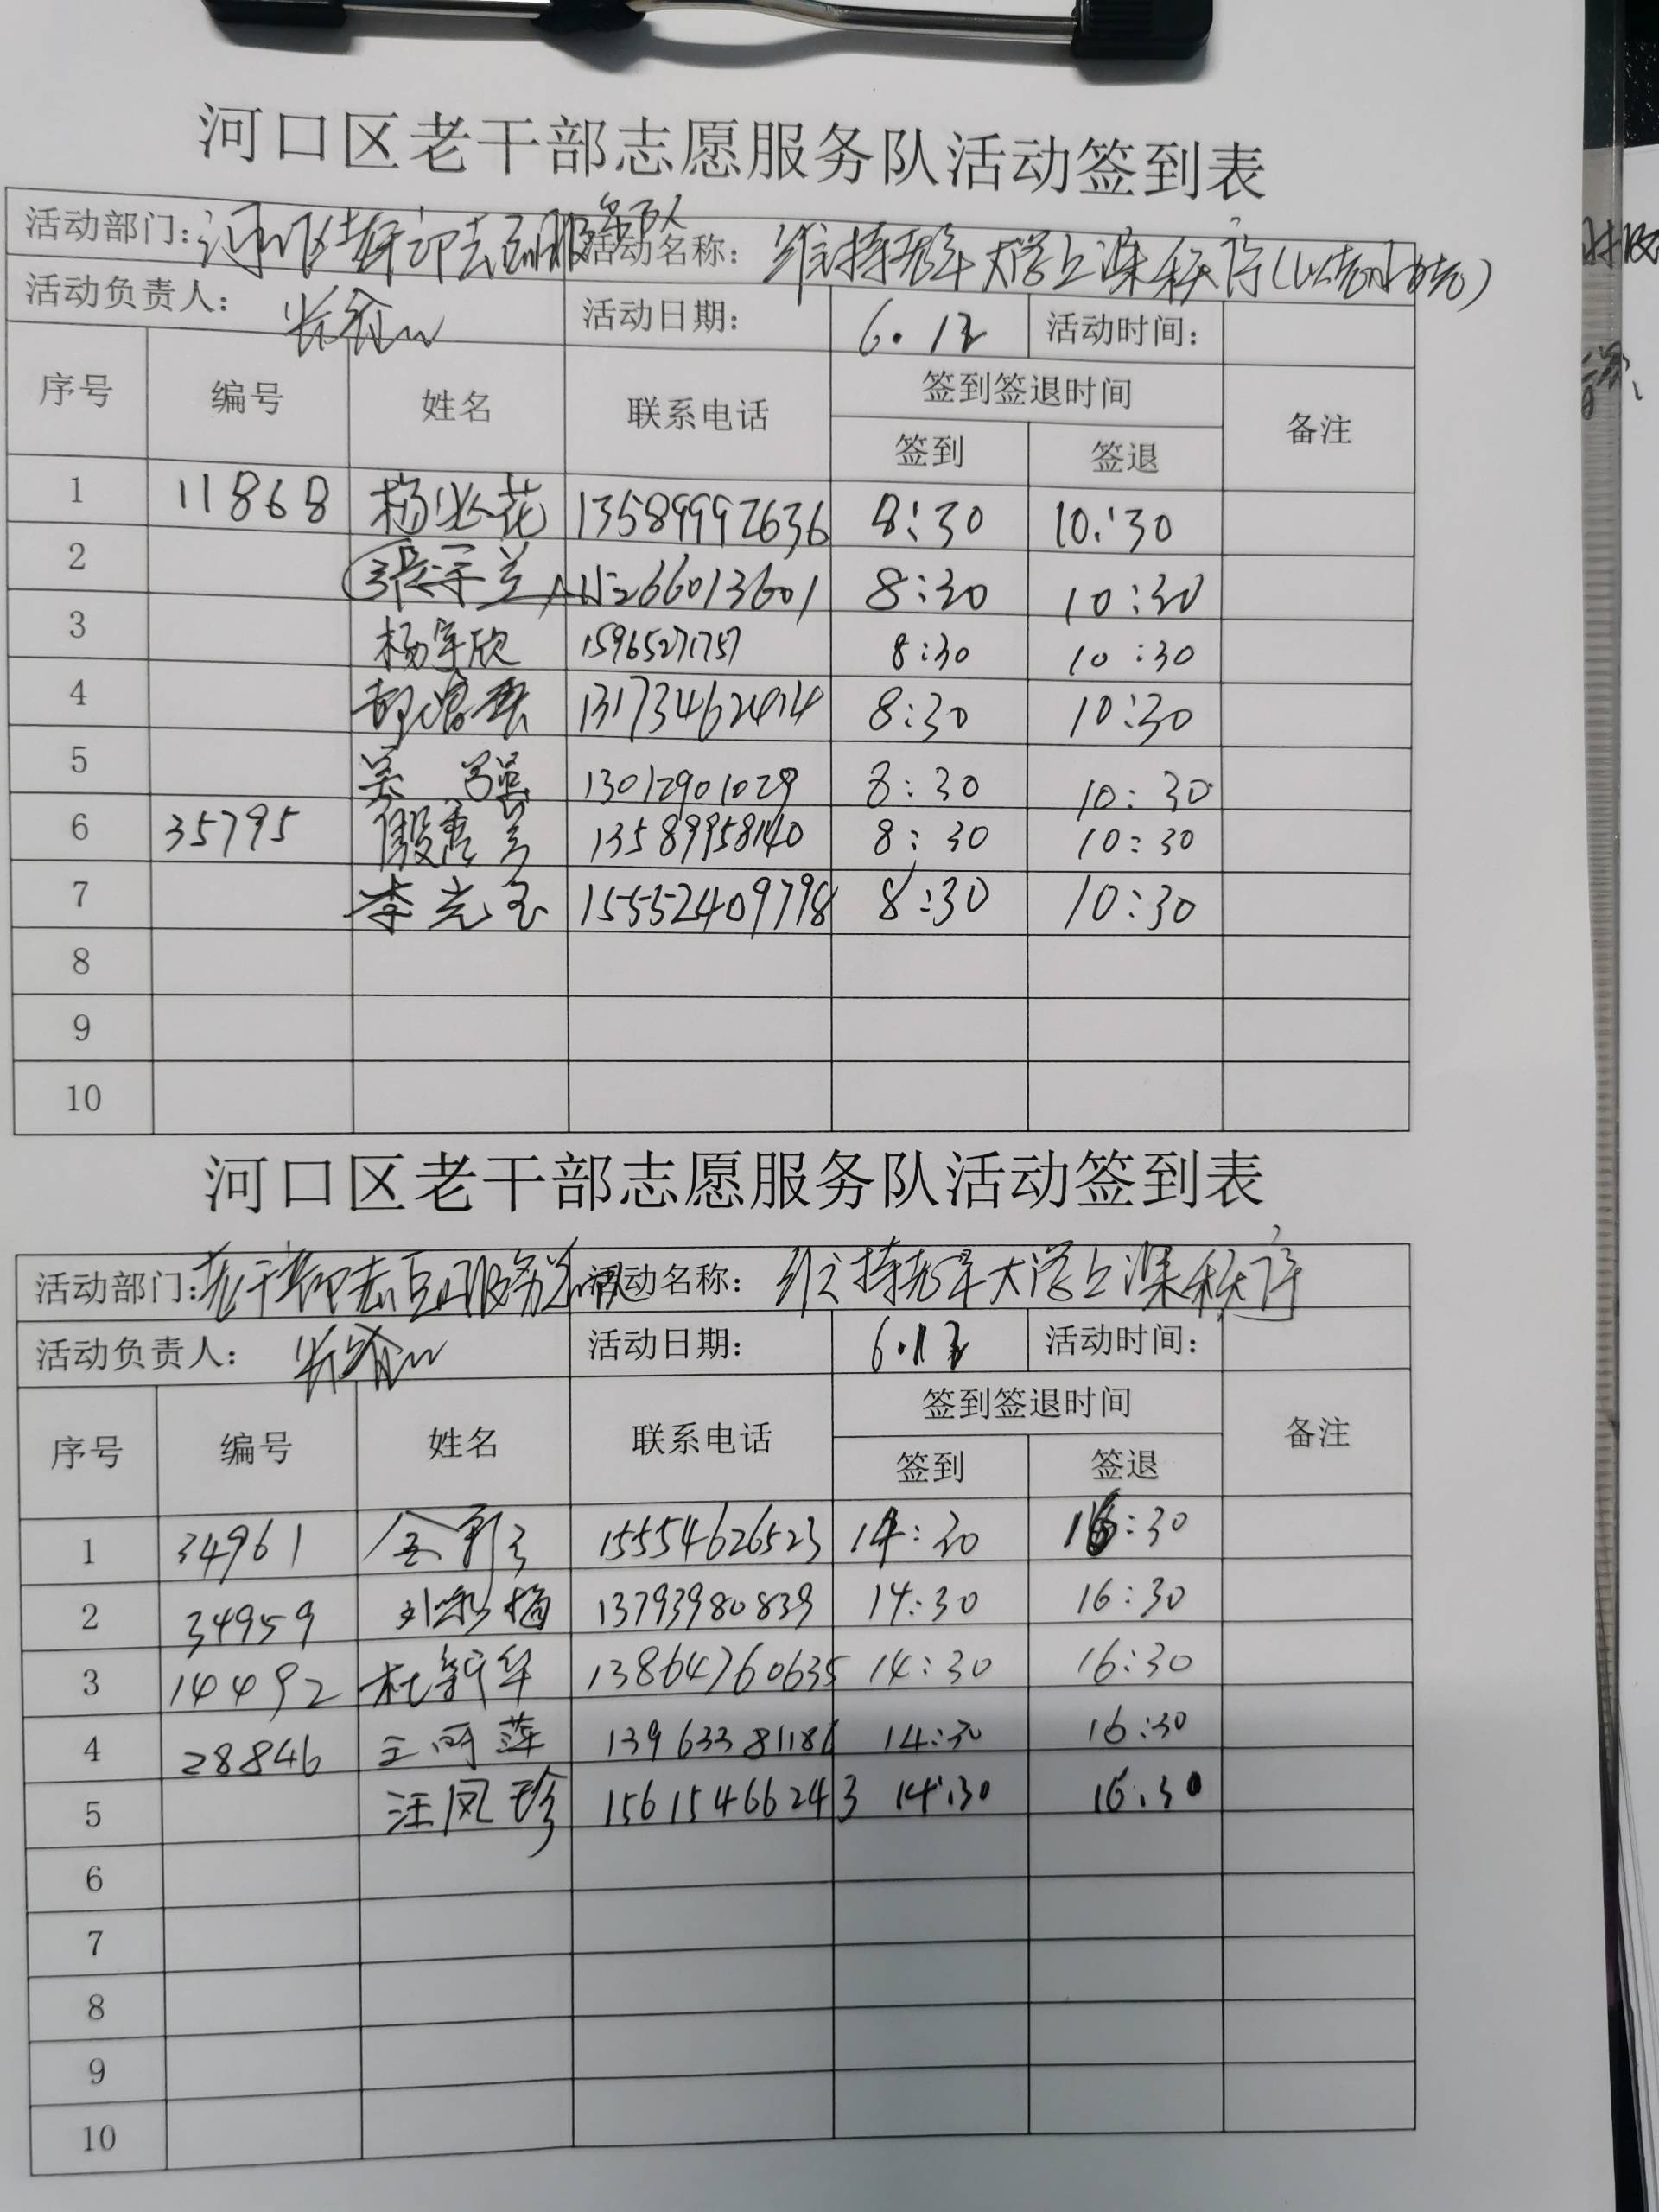 河口区老干部志愿服务队活动签到表
活动部门: 活动名称: 维持老年大学上课秩序
活动负责人: 活动日期: 6.12 活动时间:
序号 编号 姓名 联系电话 签到签退时间 备注
签到 签退
1 11868 杨 花 13589992636 8:30 10:30
2 15266013601 8:30 10:30
3 杨宇欣 15965271757 8:30 10:30
4 8:30 10:30
5 吴 强 13012901029 8:30 10:30
6 35795 13589958140 8:30 10:30
7 李光玉 15552409798 8:30 10:30
8
9
10
河口区老干部志愿服务队活动签到表
活动部门: 活动名称: 维持老年大学上课秩序
活动负责人: 活动日期: 6.12 活动时间:
序号 编号 姓名 联系电话 签到签退时间 备注
签到 签退
1 34961 15554626523 14:30 16:30
2 34959 刘彩梅 13793980839 14:30 16:30
3 14492 杜新华 13864760635 14:30 16:30
4 28846 王丽萍 13963381186 14:30 16:30
5 汪凤珍 15615466243 14:30 16:30
6
7
8
9
10